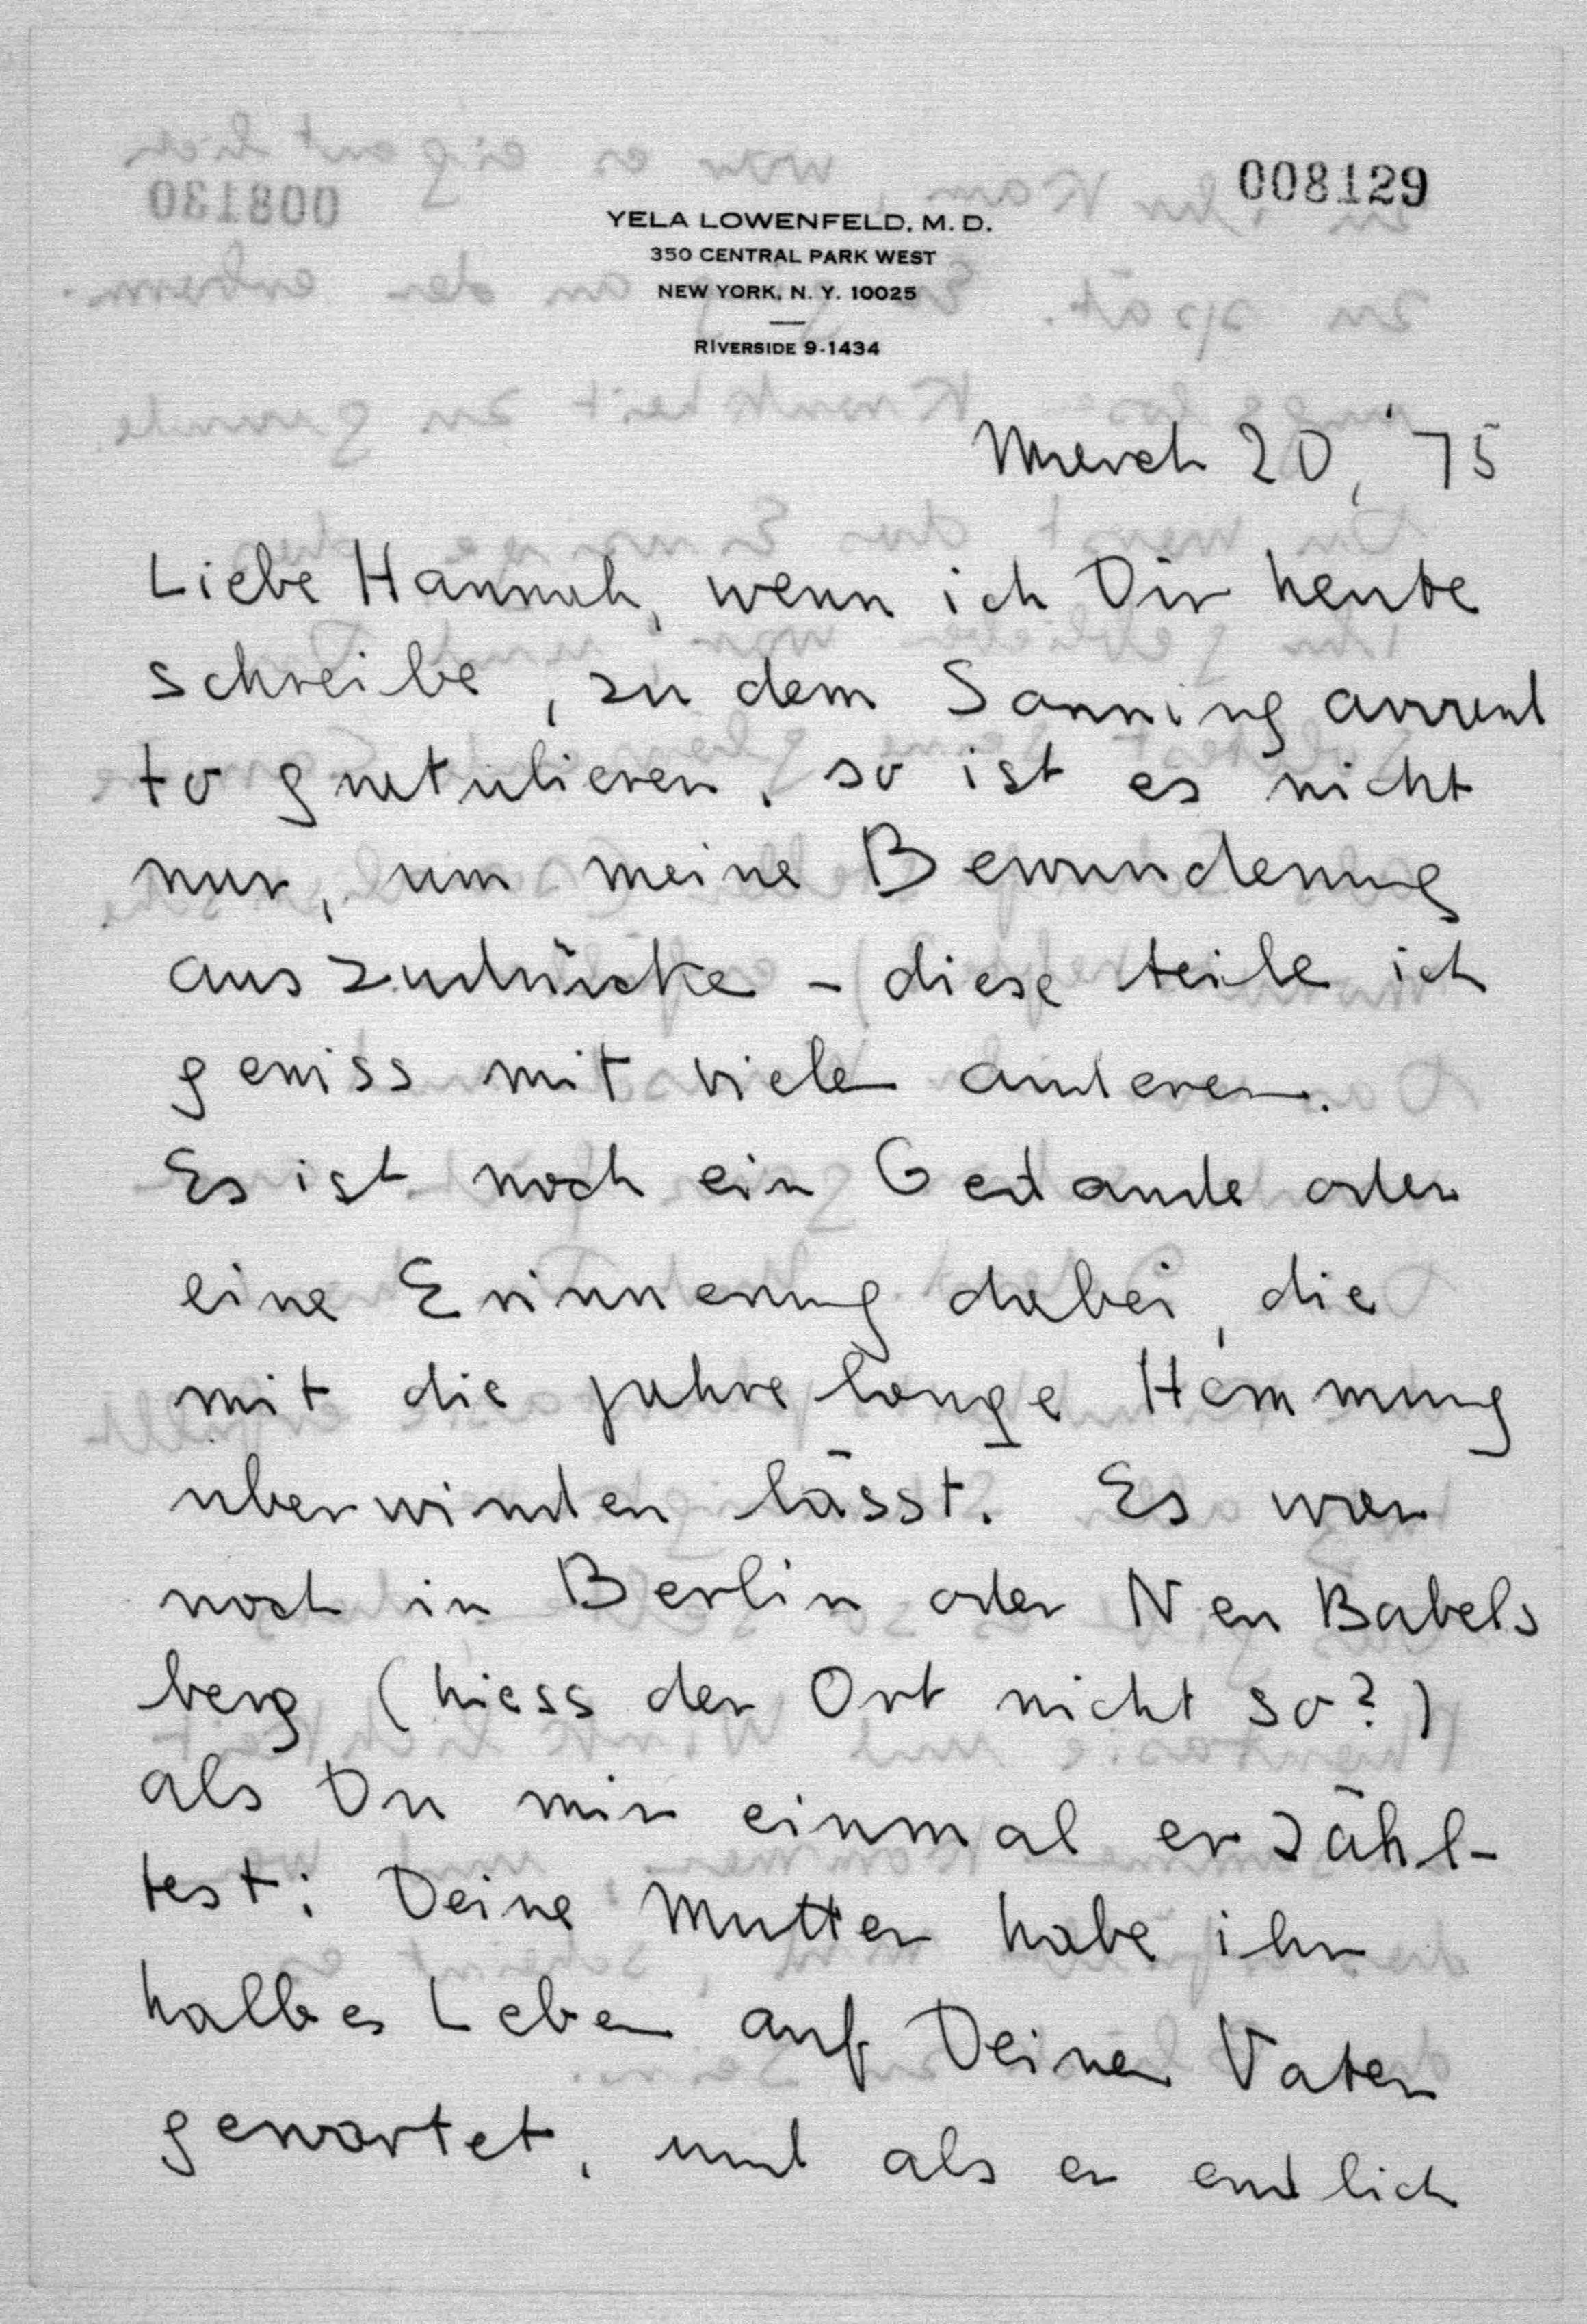 008129
YELA LOWENFELD, M. D.
350 CENTRAL PARK WEST
NEW YORK, N. Y. 10025
RIVERSIDE 9-1434
March 20, '75
Liebe Hannah, wenn ich Dir heute
schreibe, zu dem Sonning award
to gratulieren, so ist es nicht
nur, um meine Bewunderung
auszudrücke - diese teile ich
gewiss mit vielen anderen.
Es ist noch ein Gedanke oder
eine Erinnerung dabei, die
mit die jahrelange Hemmung
überwinden lässt. Es war
noch in Berlin oder Neu Babels
berg (hiess der Ort nicht so?)
als Du mir einmal erzähl-
test: Deine Mutter habe ihr
halbes Leben auf Deinen Vater
gewartet, und als er endlich